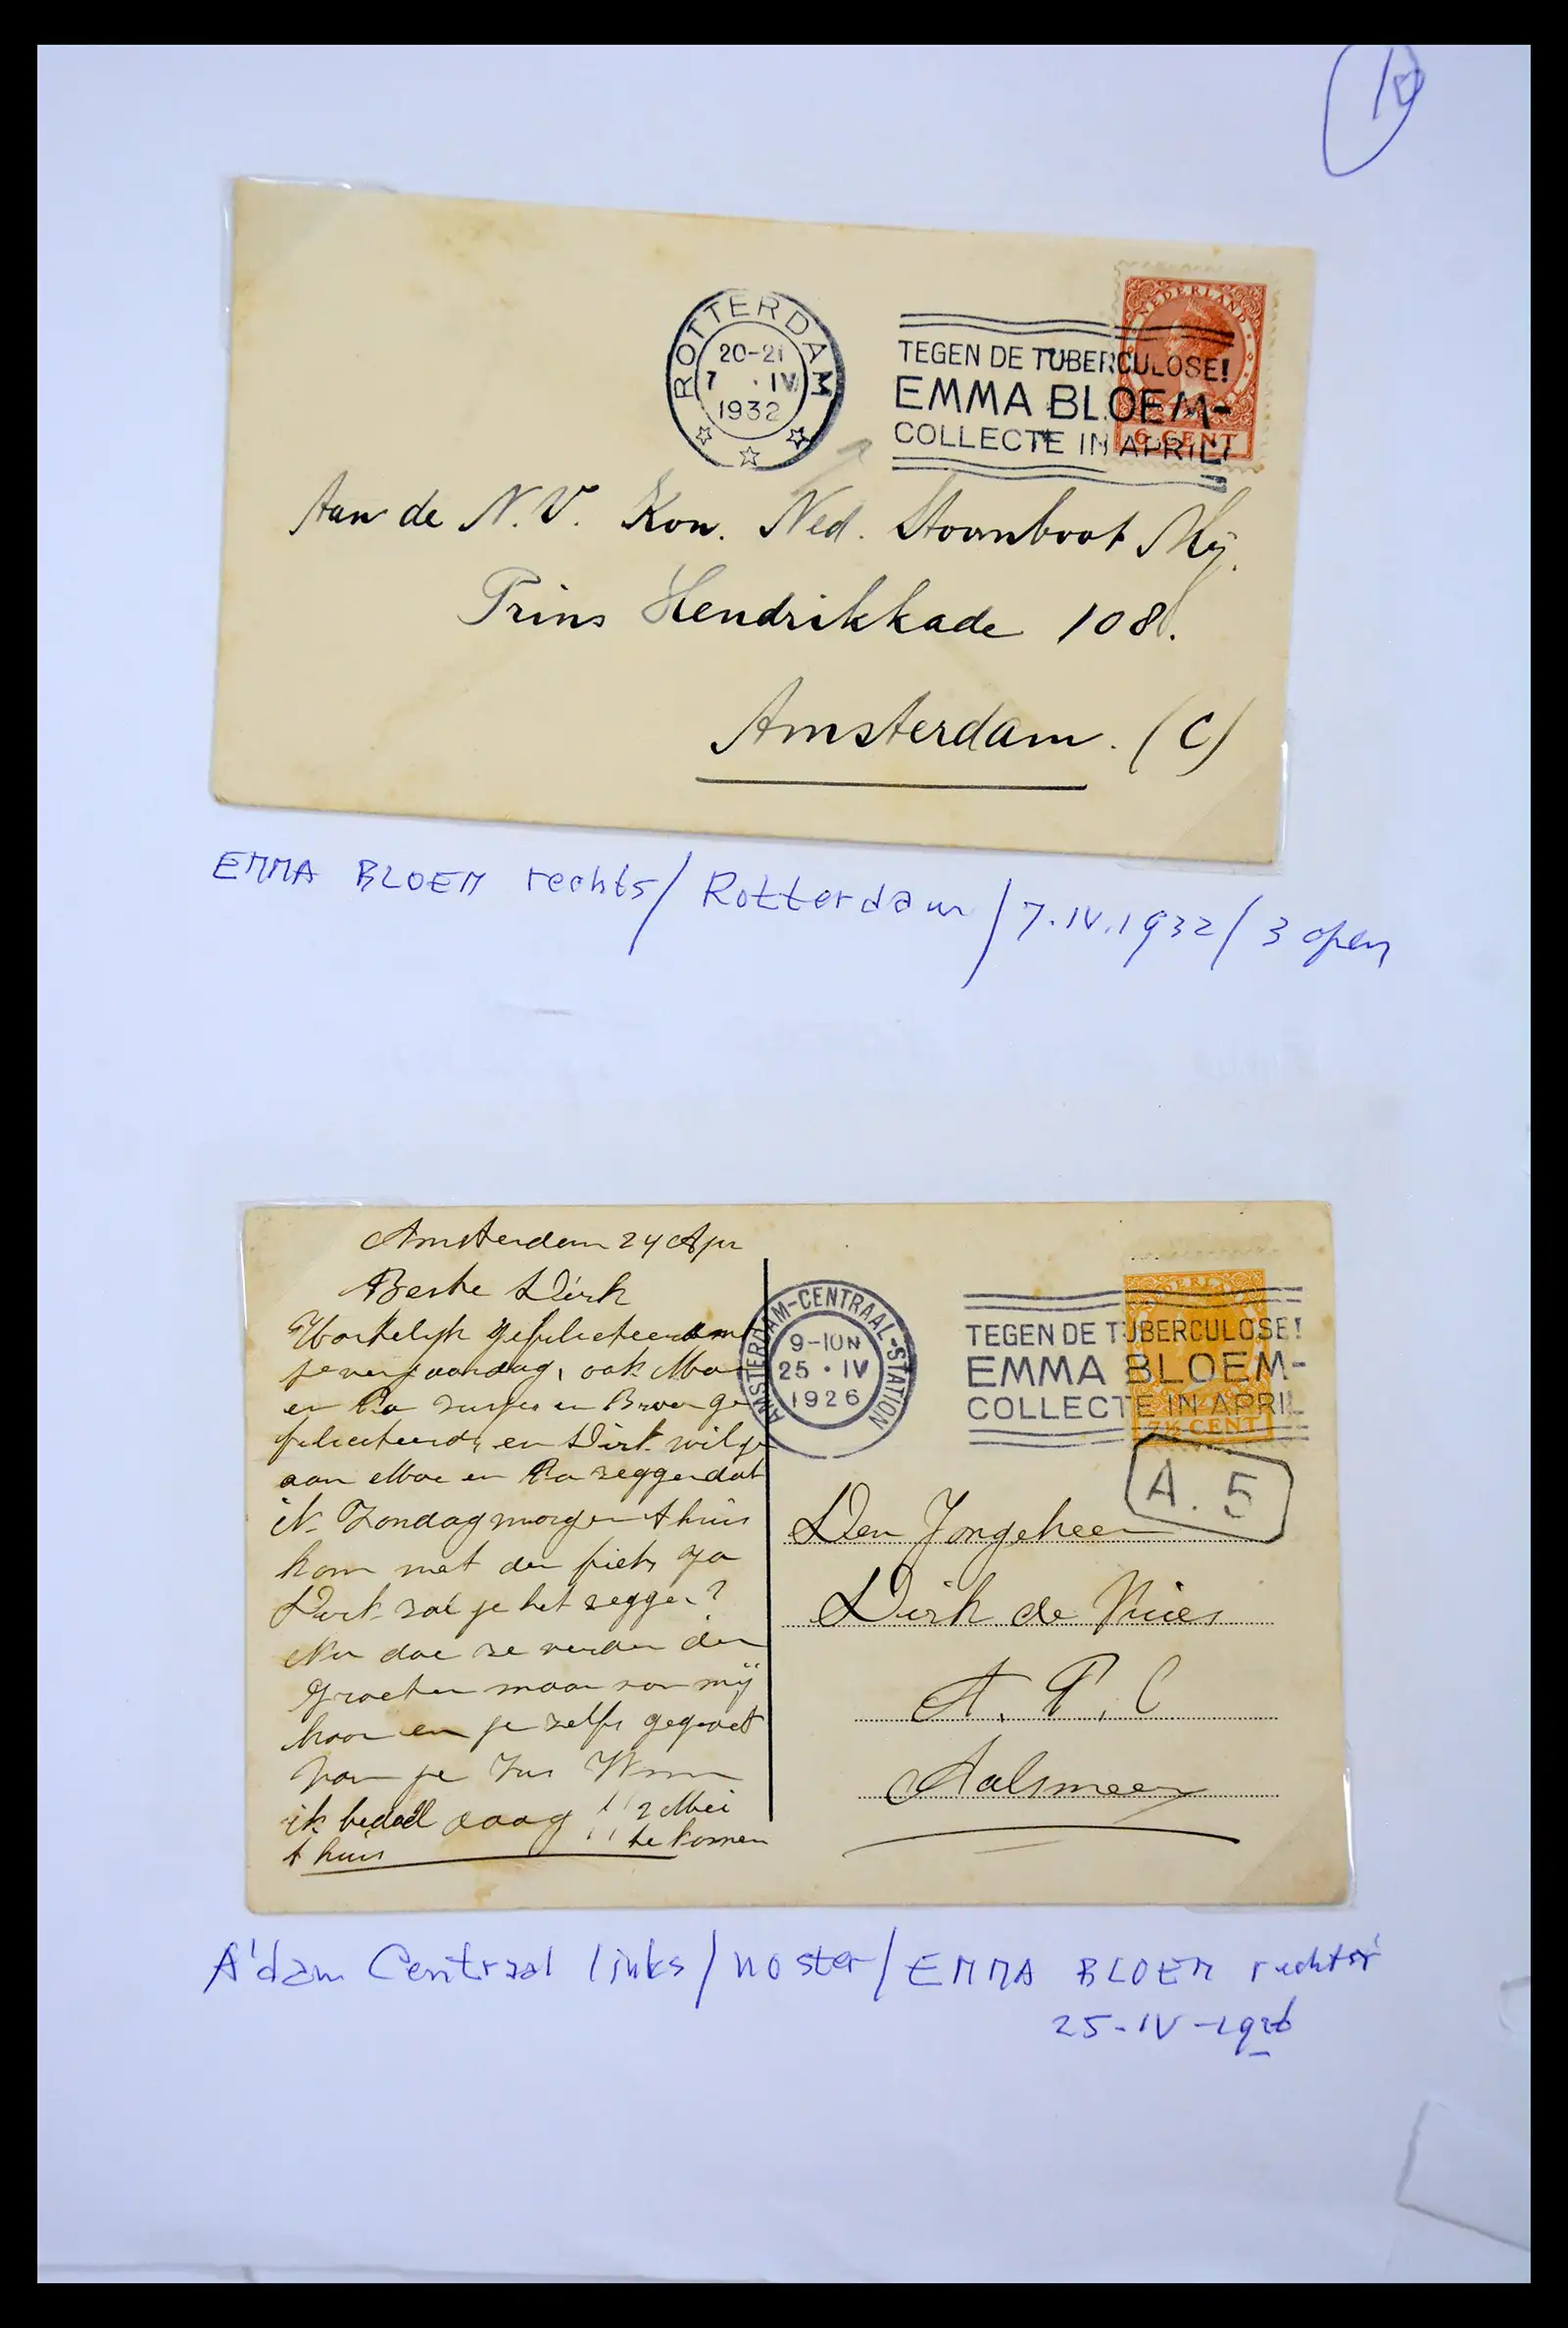 10
ROTTERDAM
20-21
7 · IV
1932
NEDERLAND
6 CENT
TEGEN DE TUBERCULOSE!
EMMA BLOEM-
COLLECTE IN APRIL!
Aan de N.V. Kon. Ned. Stoomboot Mij.
Prins Hendrikkade 108.
Amsterdam. (C)
EMMA BLOEM rechts / Rotterdam / 7.IV.1932 / 3 open
Amsterdam 24 Apr
Beste Dirk
Hartelijk gefeliciteerd met
je verjaardag, ook Moe
en Pa Zusjes en Broer ge
feliciteerd, en Dirk wil je
aan Moe en Pa zeggen dat
ik Zondagmorgen thuis
kom met den fiets ja
Dirk zal je het zeggen?
Nu doe ze verder den
groeten maar van mij
hoor en je zelfs gegroet
van je Zus
ik bedoel !! 2 Mei
thuis te komen
AMSTERDAM-CENTRAAL-STATION
9-10N
25 · IV
1926
NEDERLAND
7½ CENT
TEGEN DE TUBERCULOSE!
EMMA BLOEM-
COLLECTE IN APRIL
A. 5
Den Jongeheer
Dirk de Vries
A. P. C
Aalsmeer
A'dam Centraal links / no ster / EMMA BLOEM rechts
25-IV-1926